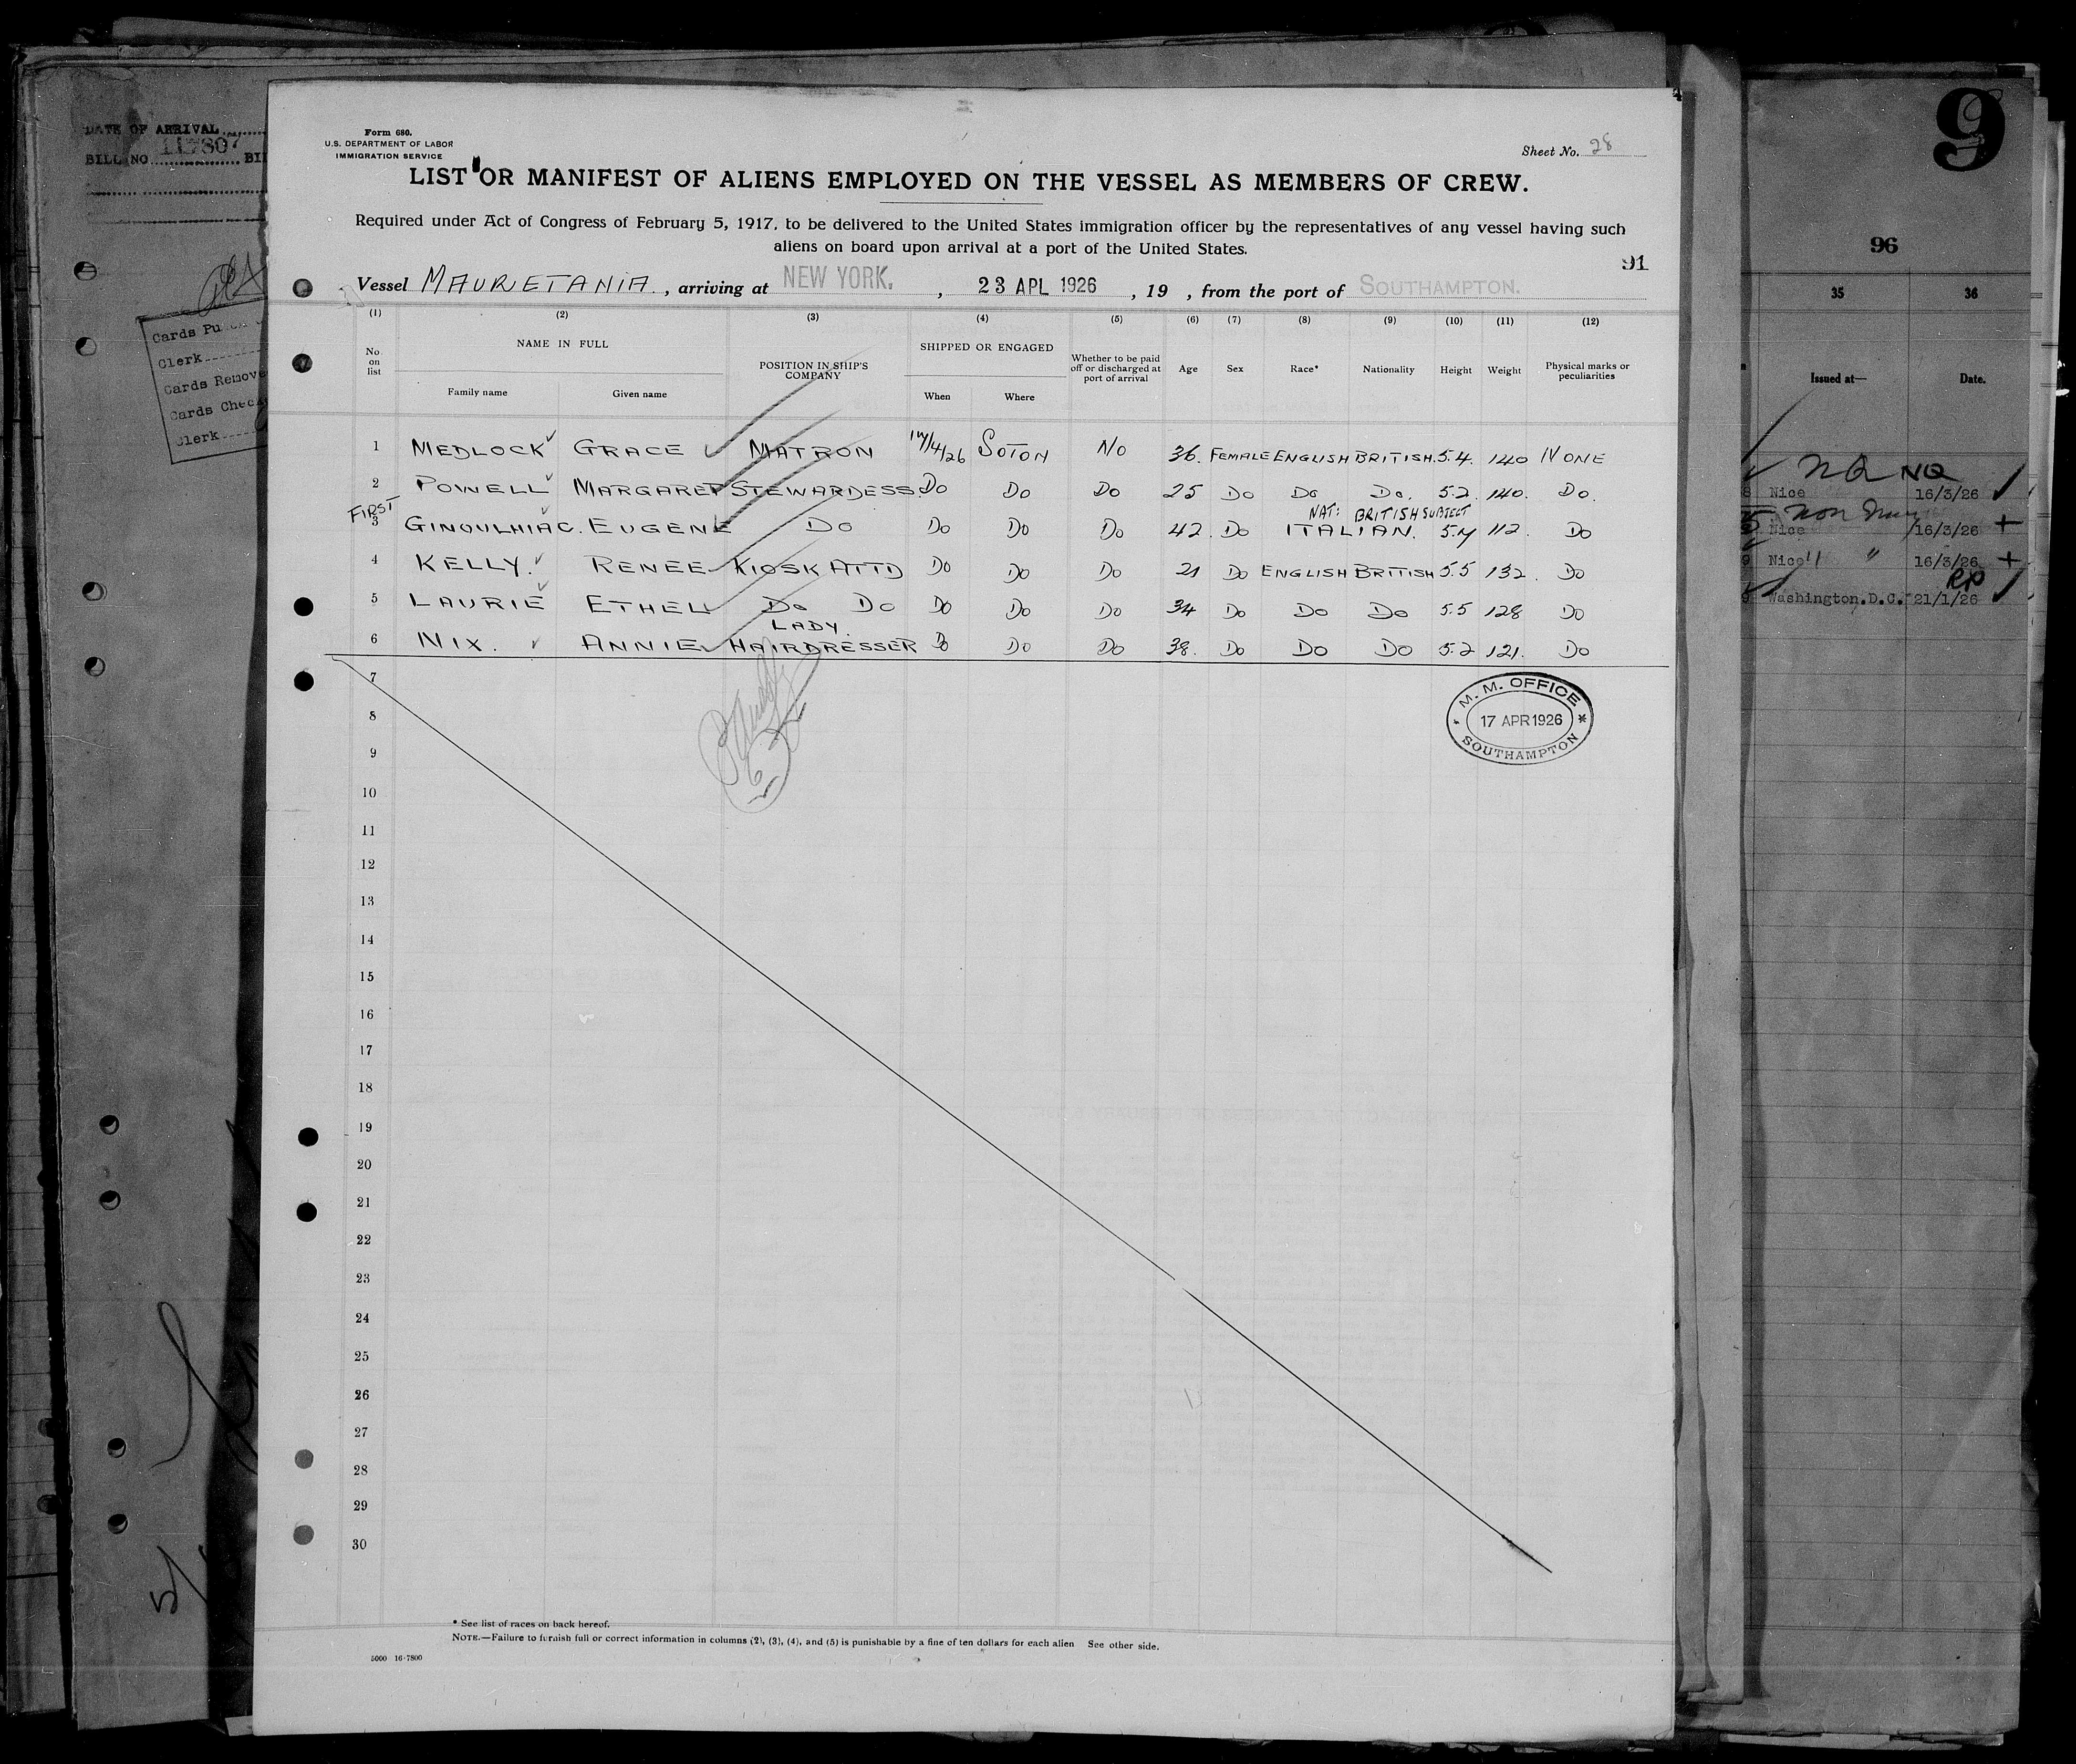 DATE OF ARRIVAL
BILL NO. 117807
Cards Pu
Clerk
Cards Remove
Cards Chec
Clerk
Form 680.
U.S. DEPARTMENT OF LABOR
IMMIGRATION SERVICE
Sheet No. 28
LIST OR MANIFEST OF ALIENS EMPLOYED ON THE VESSEL AS MEMBERS OF CREW.
Required under Act of Congress of February 5, 1917, to be delivered to the United States immigration officer by the representatives of any vessel having such
aliens on board upon arrival at a port of the United States.
91
Vessel MAURETANIA, arriving at NEW YORK., 23 APL 1926, 19 , from the port of SOUTHAMPTON.
(1) (2) (3) (4) (5) (6) (7) (8) (9) (10) (11) (12)
No on list NAME IN FULL Family name Given name POSITION IN SHIP'S COMPANY SHIPPED OR ENGAGED When Where Whether to be paid off or discharged at port of arrival Age Sex Race* Nationality Height Weight Physical marks or peculiarities
1 MEDLOCK GRACE MATRON 17/4/26 SOTON NO 36. FEMALE ENGLISH BRITISH. 5.4. 140 NONE
2 POWELL MARGARET STEWARDESS. DO DO DO 25 DO DO DO. 5.2. 140. DO.
FIRST NAT: BRITISH SUBJECT
3 GINOULHIAC. EUGENE DO DO DO DO 42. DO ITALIAN. 5.4 112. DO
4 KELLY. RENEE KIOSK ATTD DO DO DO 21 DO ENGLISH BRITISH 5.5 132. DO
5 LAURIE ETHEL DO DO DO DO DO 34 DO DO DO 5.5 128 DO
LADY.
6 NIX. ANNIE HAIRDRESSER DO DO DO 38. DO DO DO 5.2 121. DO
7
8
9
10
11
12
13
14
15
16
17
18
19
20
21
22
23
24
25
26
27
28
29
30
M. M. OFFICE
17 APR 1926
SOUTHAMPTON
* See list of races on back hereof.
NOTE.—Failure to furnish full or correct information in columns (2), (3), (4), and (5) is punishable by a fine of ten dollars for each alien See other side.
5000 16-7800
9
96
35 36
Issued at— Date.
NQ NQ
Nice 16/3/26
Non
Nice 16/3/26
Nice " " 16/3/26
Washington.D.C. 21/1/26